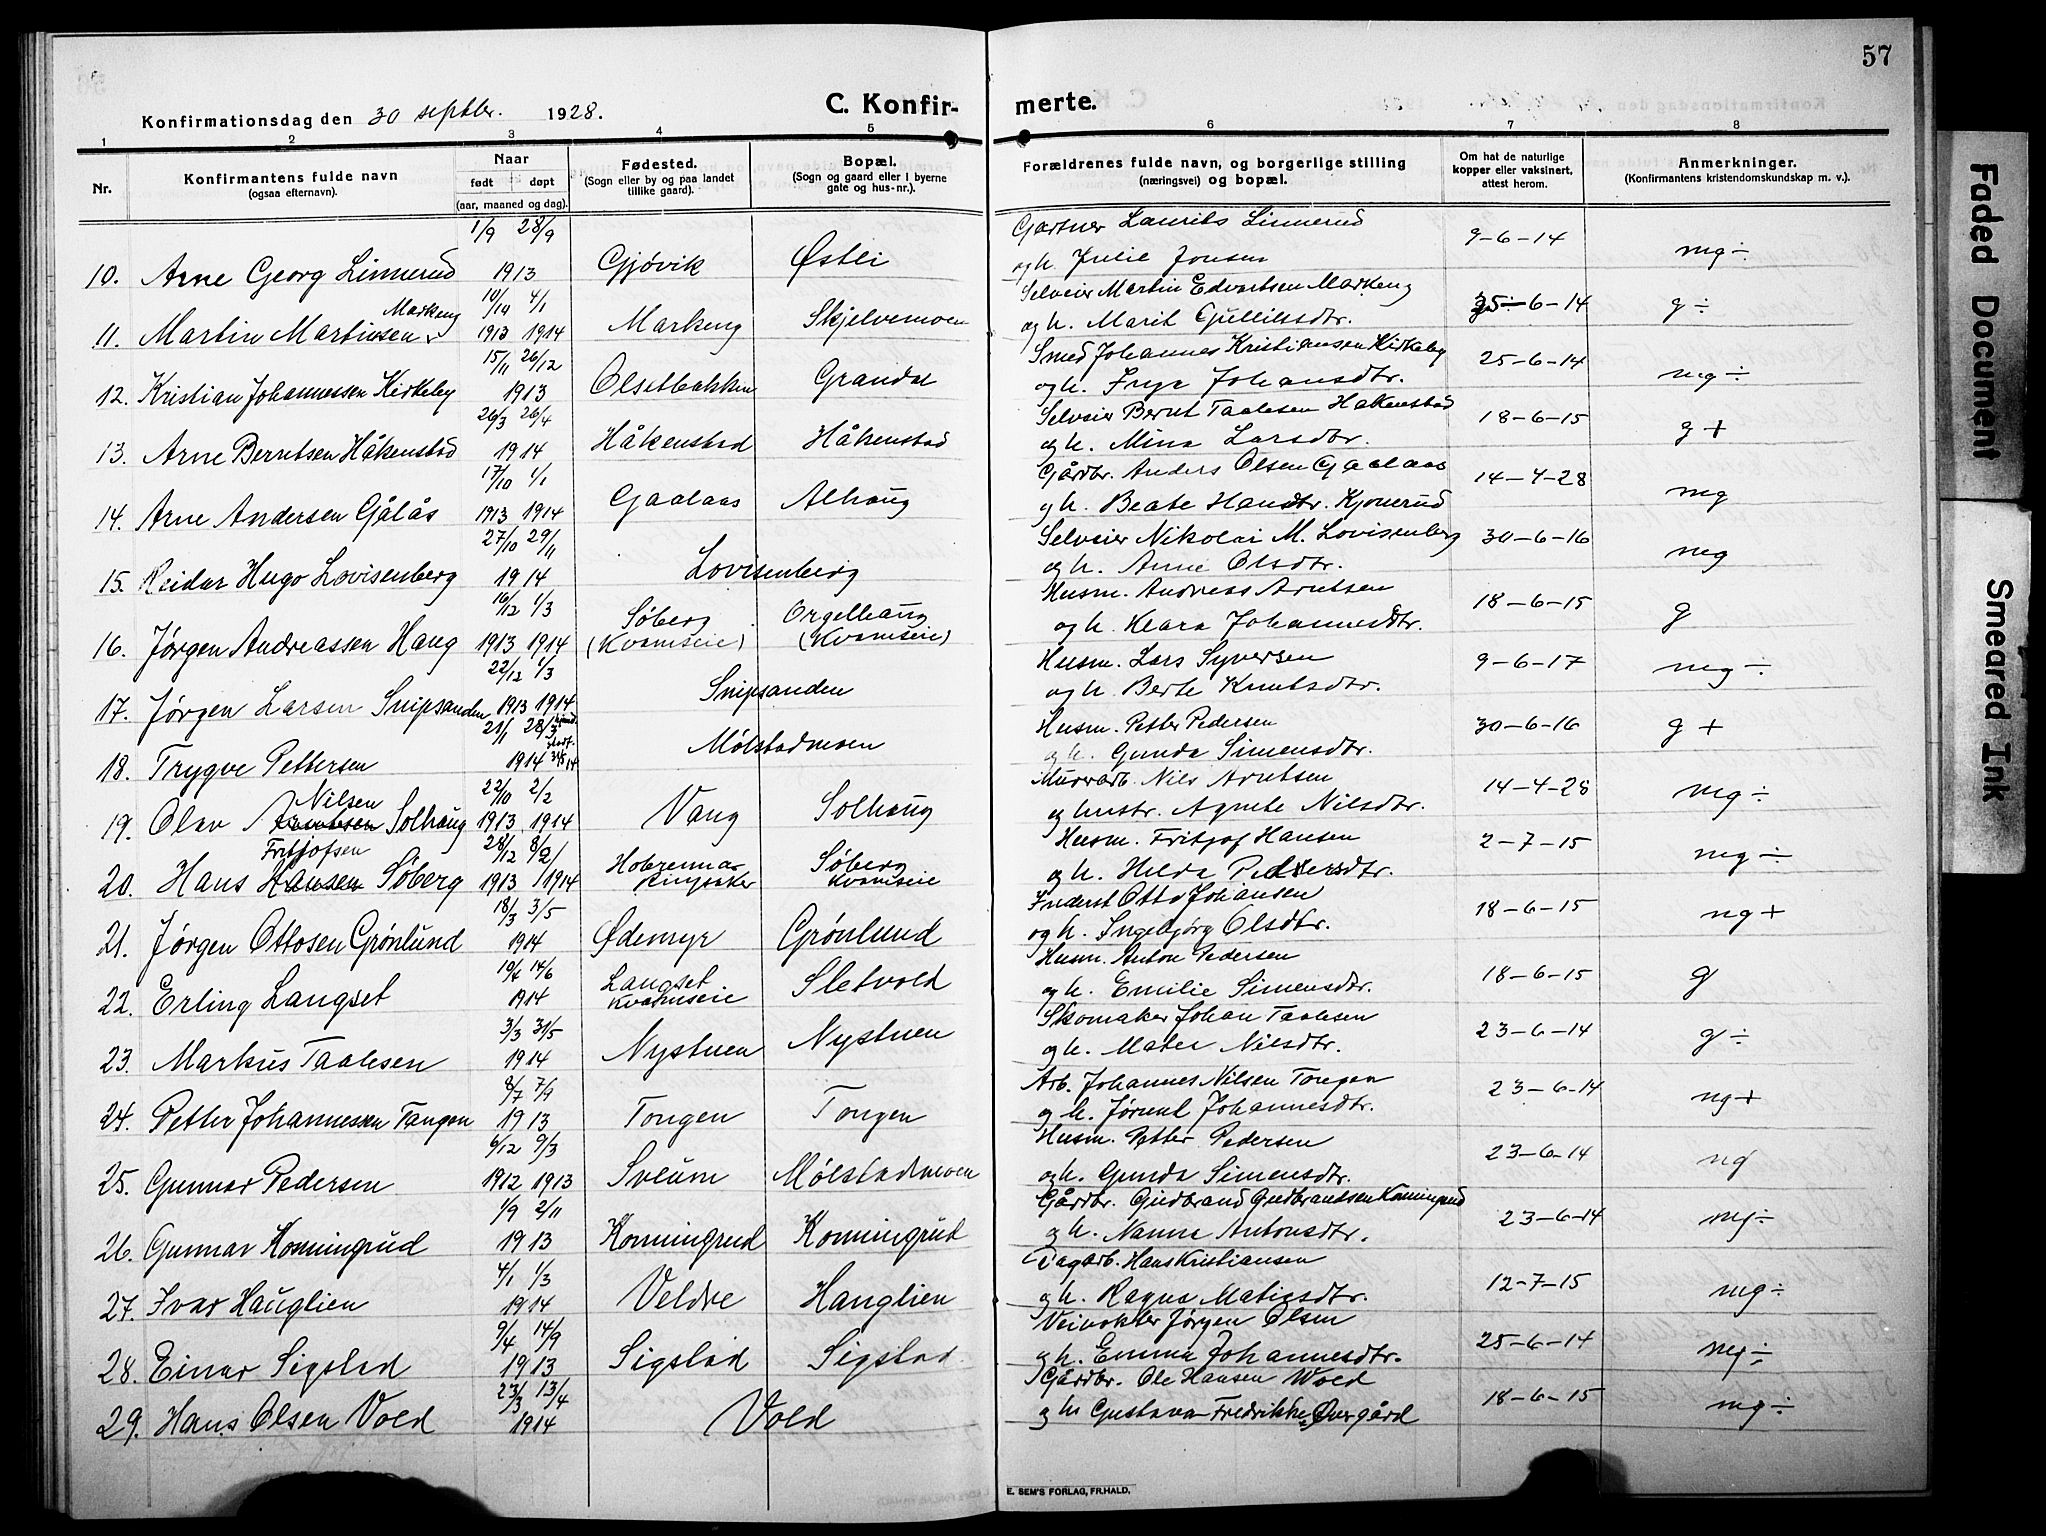 57
Konfirmationsdag den 30 septbr. 1928.
C. Konfirmerte.
1 2 3 4 5 6 7 8
Nr.
Konfirmantens fulde navn
(ogsaa efternavn).
Naar
født døpt
(aar, maaned og dag).
Fødested.
(Sogn eller by og paa landet
tillike gaard).
Bopæl.
(Sogn og gaard eller i byerne
gate og hus-nr.).
Forældrenes fulde navn, og borgerlige stilling
(næringsvei) og bopæl.
Om hat de naturlige
kopper eller vaksinert,
attest herom.
Anmerkninger.
(Konfirmantens kristendomskundskap m. v.).
1/9 28/9 Gartner Laurits Linnerud
10. Arne Georg Linnerud 1913 Gjøvik Østli og h. Julie Jonsen 9-6-14 mg÷
Markeng 10/10 4/1 Selveier Martin Edvartsen Markeng
11. Martin Martinsen 1913 1914 Markeng Skjelvemoen og h. Marit Gulliksdtr. 25-6-14 g÷
15/11 26/12 Smed Johannes Kristiansen Kirkeby
12. Kristian Johannessen Kirkeby 1913 Olsetbakken Grandal og h. Johansdtr. 25-6-14 mg÷
26/3 26/4 Selveier Bernt Taalesen Håkenstad
13. Arne Berntsen Håkenstad 1914 Håkenstad Håkenstad og h. Mina Larsdtr. 18-6-15 g+
17/10 1/1 Gårdbr. Anders Olsen Gaalaas
14. Arne Andersen Gålås 1913 1914 Gaalaas Alhaug og h. Beate Hansdtr. Kjonerud 14-4-28 mg
27/10 29/11 Selveier Nikolai M. Lovisenberg
15. Reidar Hugo Lovisenberg 1914 Lovisenberg og h. Anne Olsdtr. 30-6-16 mg
16/12 1/3 Søberg Orgelhaug Husm. Andreas Arntsen
16. Jørgen Andreassen Haug 1913 1914 (Kvamseie) (Kvamseie) og h. Klara Johannesdtr. 18-6-15 g
22/12 1/3 Husm. Lars Syversen
17. Jørgen Larsen Snipsanden 1913 1914 Snipsanden og h. Berte Knutsdtr. 9-6-17 mg÷
21/1 28/3 Husm. Petter Pedersen
18. Trygve Pettersen 1914 Mølstadmoen og h. Gunda Simensdtr. 30-6-16 g+
Nilsen 22/10 2/2 Murarb. Nils Arntsen
19. Olav Arntsen Solhaug 1913 1914 Vang Solhaug og hustr. Agnete Nilsdtr. 14-4-28 mg÷
Fritjofsen 28/12 8/2 Søberg Husm. Fritjof Hansen
20. Hans Hansen Søberg 1913 1914 Ringsaker Kvamseie og h. Hilda Pedersdtr. 2-7-15 mg÷
18/3 3/5 Inderst Otto Johansen
21. Jørgen Ottosen Grønlund 1914 Ødemyr Grønlund og h. Ingebjørg Olsdtr. 18-6-15 ng+
19/4 14/6 Langset Husm. Anton Pedersen
22. Erling Langset 1914 Kvamseie Sletvold og h. Emilie Simensdtr. 18-6-15 g
3/3 31/5 Skomaker Johan Taalesen
23. Markus Taalesen 1914 Nystuen Nystuen og h. Matea Nilsdtr. 23-6-14 g÷
8/7 7/9 Arb. Johannes Nilsen Tangen
24. Petter Johannessen Tangen 1913 Tangen Tangen og h. Jørand Johannesdtr. 23-6-14 ng+
6/12 9/3 Husm. Petter Pedersen
25. Gunnar Pedersen 1912 1913 Sveum Mølstadmoen og h. Gunda Simensdtr. 23-6-14 ng
1/9 2/11 Gårdbr. Gudbrand Gudbrandsen Konningrud
26. Gunnar Konningrud 1913 Konningrud Konningrud og h. Nanna Antonsdtr. 23-6-14 mg÷
4/1 1/3 Dagarb. Hans Kristiansen
27. Ivar Hauglien 1914 Veldre Hauglien og h. Ragna Matiasdtr. 12-7-15 mg÷
9/4 14/9 Veivokter Jørgen Olsen
28. Einar Sigstad 1913 Sigstad Sigstad og h. Emma Johannesdtr. 25-6-14 mg÷
23/3 13/4 Gårdbr. Ole Hansen Wold
29. Hans Olsen Vold 1914 Vold og h Gustava Fredrikke Øvergård 18-6-15 mg÷
E. SEM'S FORLAG, FR.HALD.
Faded Document
Smeared Ink